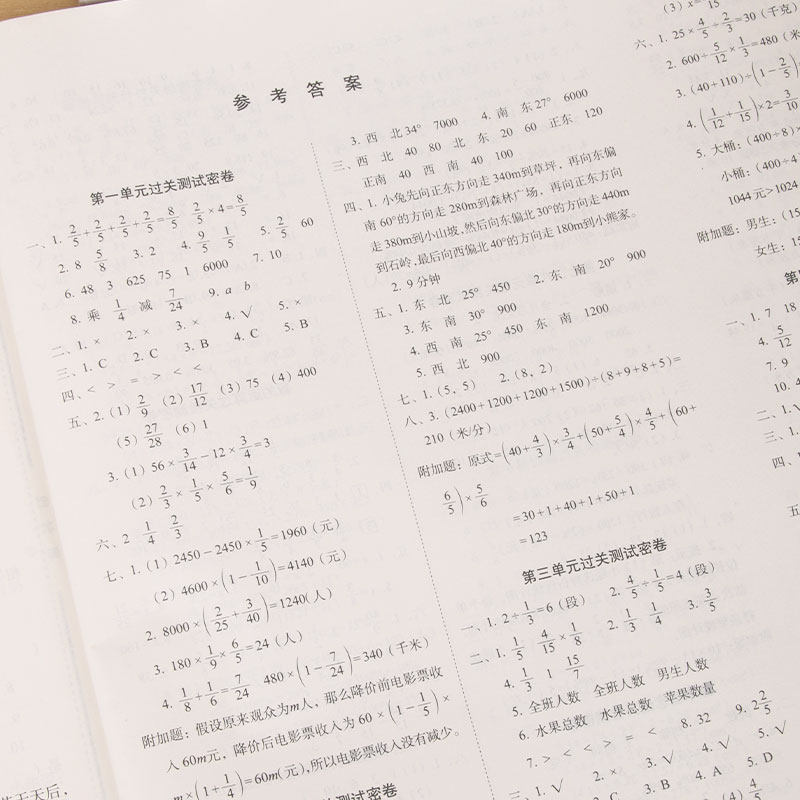 参考答案
第一单元过关测试密卷
一、1. 2/5+2/5+2/5+2/5=8/5 2/5×4=8/5
2. 8 5/8 3. 2 4. 9/5 1/5 5. 2/5 60
6. 48 3 625 75 1 6000 7. 10
8. 乘 1/4 减 7/24 9. a b
二、1. × 2. × 3. × 4. √ 5. ×
三、1. C 2. C 3. B 4. C 5. B
四、< > = > < <
五、2.(1) 2/9 (2) 17/12 (3) 75 (4) 400
(5) 27/28 (6) 1
3.(1) 56×3/14-12×3/4=3
(2) 2/3×1/5×5/6=1/9
六、2 1/4 2/3
七、1.(1) 2450-2450×1/5=1960(元)
(2) 4600×(1-1/10)=4140(元)
2. 8000×(2/25+3/40)=1240(人)
3. 180×1/9×6/5=24(人)
4. 1/8+1/6=7/24 480×(1-7/24)=340(千米)
附加题:假设原来观众为m人,那么降价前电影票收
入60m元,降价后电影票收入为60×(1-1/5)×
m×(1+1/4)=60m(元),所以电影票收入没有减少。
测试密卷
3. 西 北34° 7000 4. 南 东27° 6000
三、西 北 40 80 北 东 20 60 正东 120
正南 40 西 南 40 100
四、1. 小兔先向正东方向走340m到草坪,再向东偏
南60°的方向走280m到森林广场,再向正东方向
走380m到小山坡,然后向东偏北30°的方向走440m
到石岭,最后向西偏北40°的方向走180m到小熊家。
2. 9分钟
五、1. 东 北 25° 450 2. 东 南 20° 900
3. 东 南 30° 900
4. 西 南 25° 450 东 南 1200
5. 西 北 900
七、1.(5,5) 2.(8,2)
八、3.(2400+1200+1200+1500)÷(8+9+8+5)=
210(米/分)
附加题:原式=(40+4/3)×3/4+(50+5/4)×4/5+(60+
6/5)×5/6
=30+1+40+1+50+1
=123
第三单元过关测试密卷
一、1. 2÷1/3=6(段) 2. 4/5÷1/5=4(段)
二、1. 1/5 4/15×1/8 2. 1/3 1/4 3. 3/5
4. 1/3 1 15/7
5. 全班人数 全班人数 男生人数
6. 水果总数 水果总数 苹果数量
7. > < < > = < 8. 32 9. 2 2/5
三、1. √ 2. × 3. √ 4. √ 5. √
3. B 4. A 5. D
(4) 4/5
(3) x=
六、1. 25×4/5÷2/3=30(千克)
2. 600÷5/12×1/3=480(米
3.(40+110)÷(1-2/5)
4.(1/12+1/15)×2=3/10
5. 大桶:(400÷8)×
小桶:(400÷4
1044元>1024
附加题:男生:(15
女生:15
第
一、1. 7 18
4. 5/12
7. 9
10. 4
二、1. √
三、1.
四、1.
五